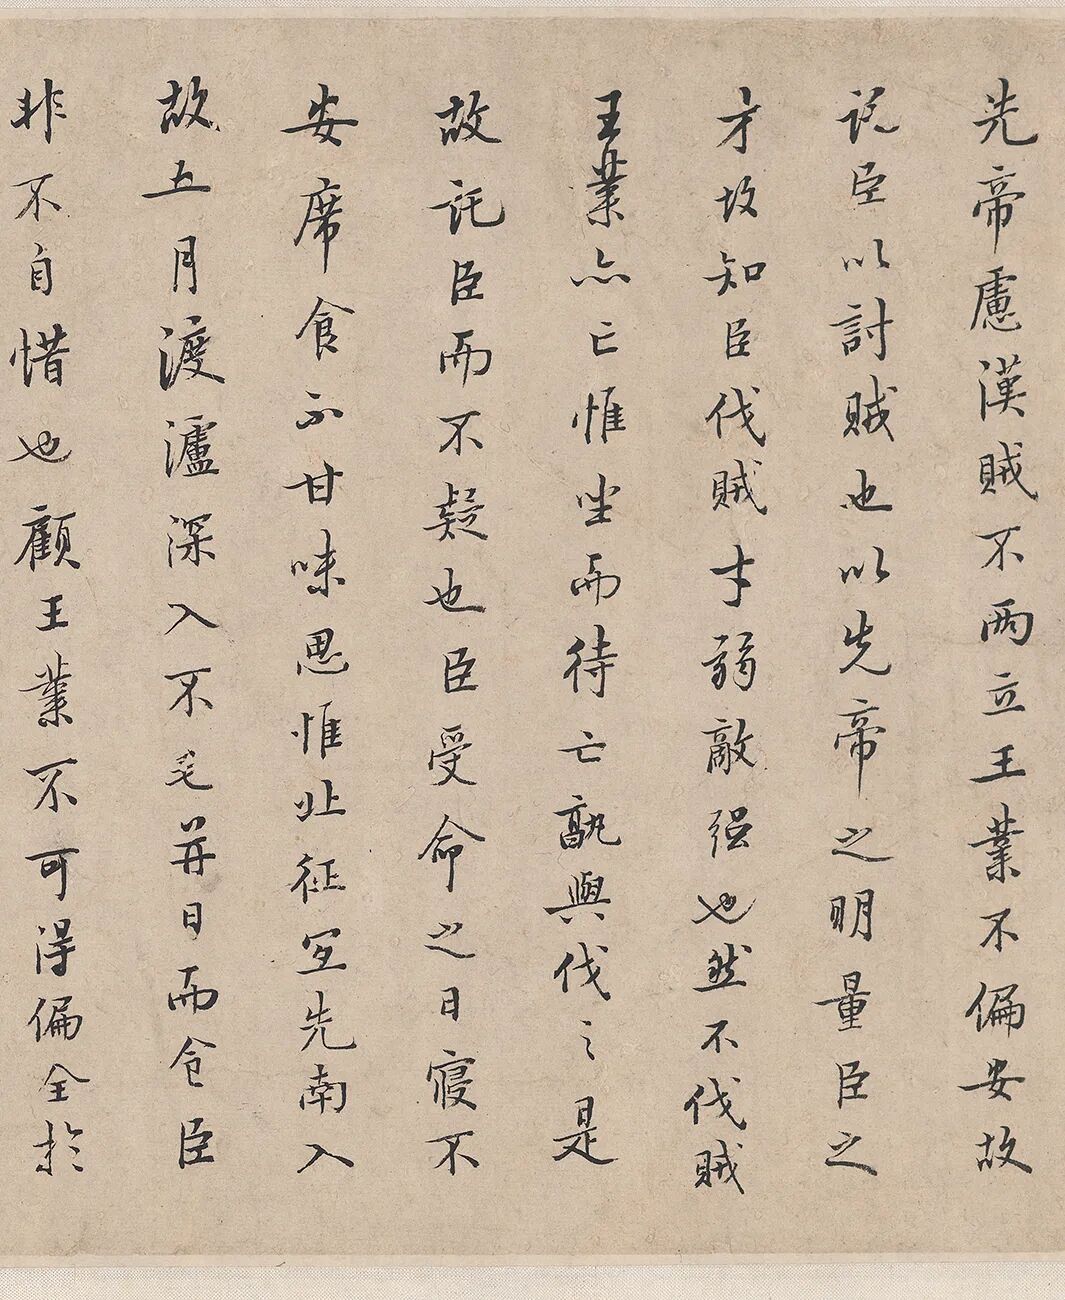 先帝慮漢賊不兩立王業不偏安故
託臣以討賊也以先帝之明量臣之
才故知臣伐賊才弱敵强也然不伐賊
王業亦亡惟坐而待亡孰與伐之是
故託臣而不疑也臣受命之日寢不
安席食不甘味思惟北征宜先南入
故五月渡瀘深入不毛并日而食臣
非不自惜也顧王業不可得偏全於